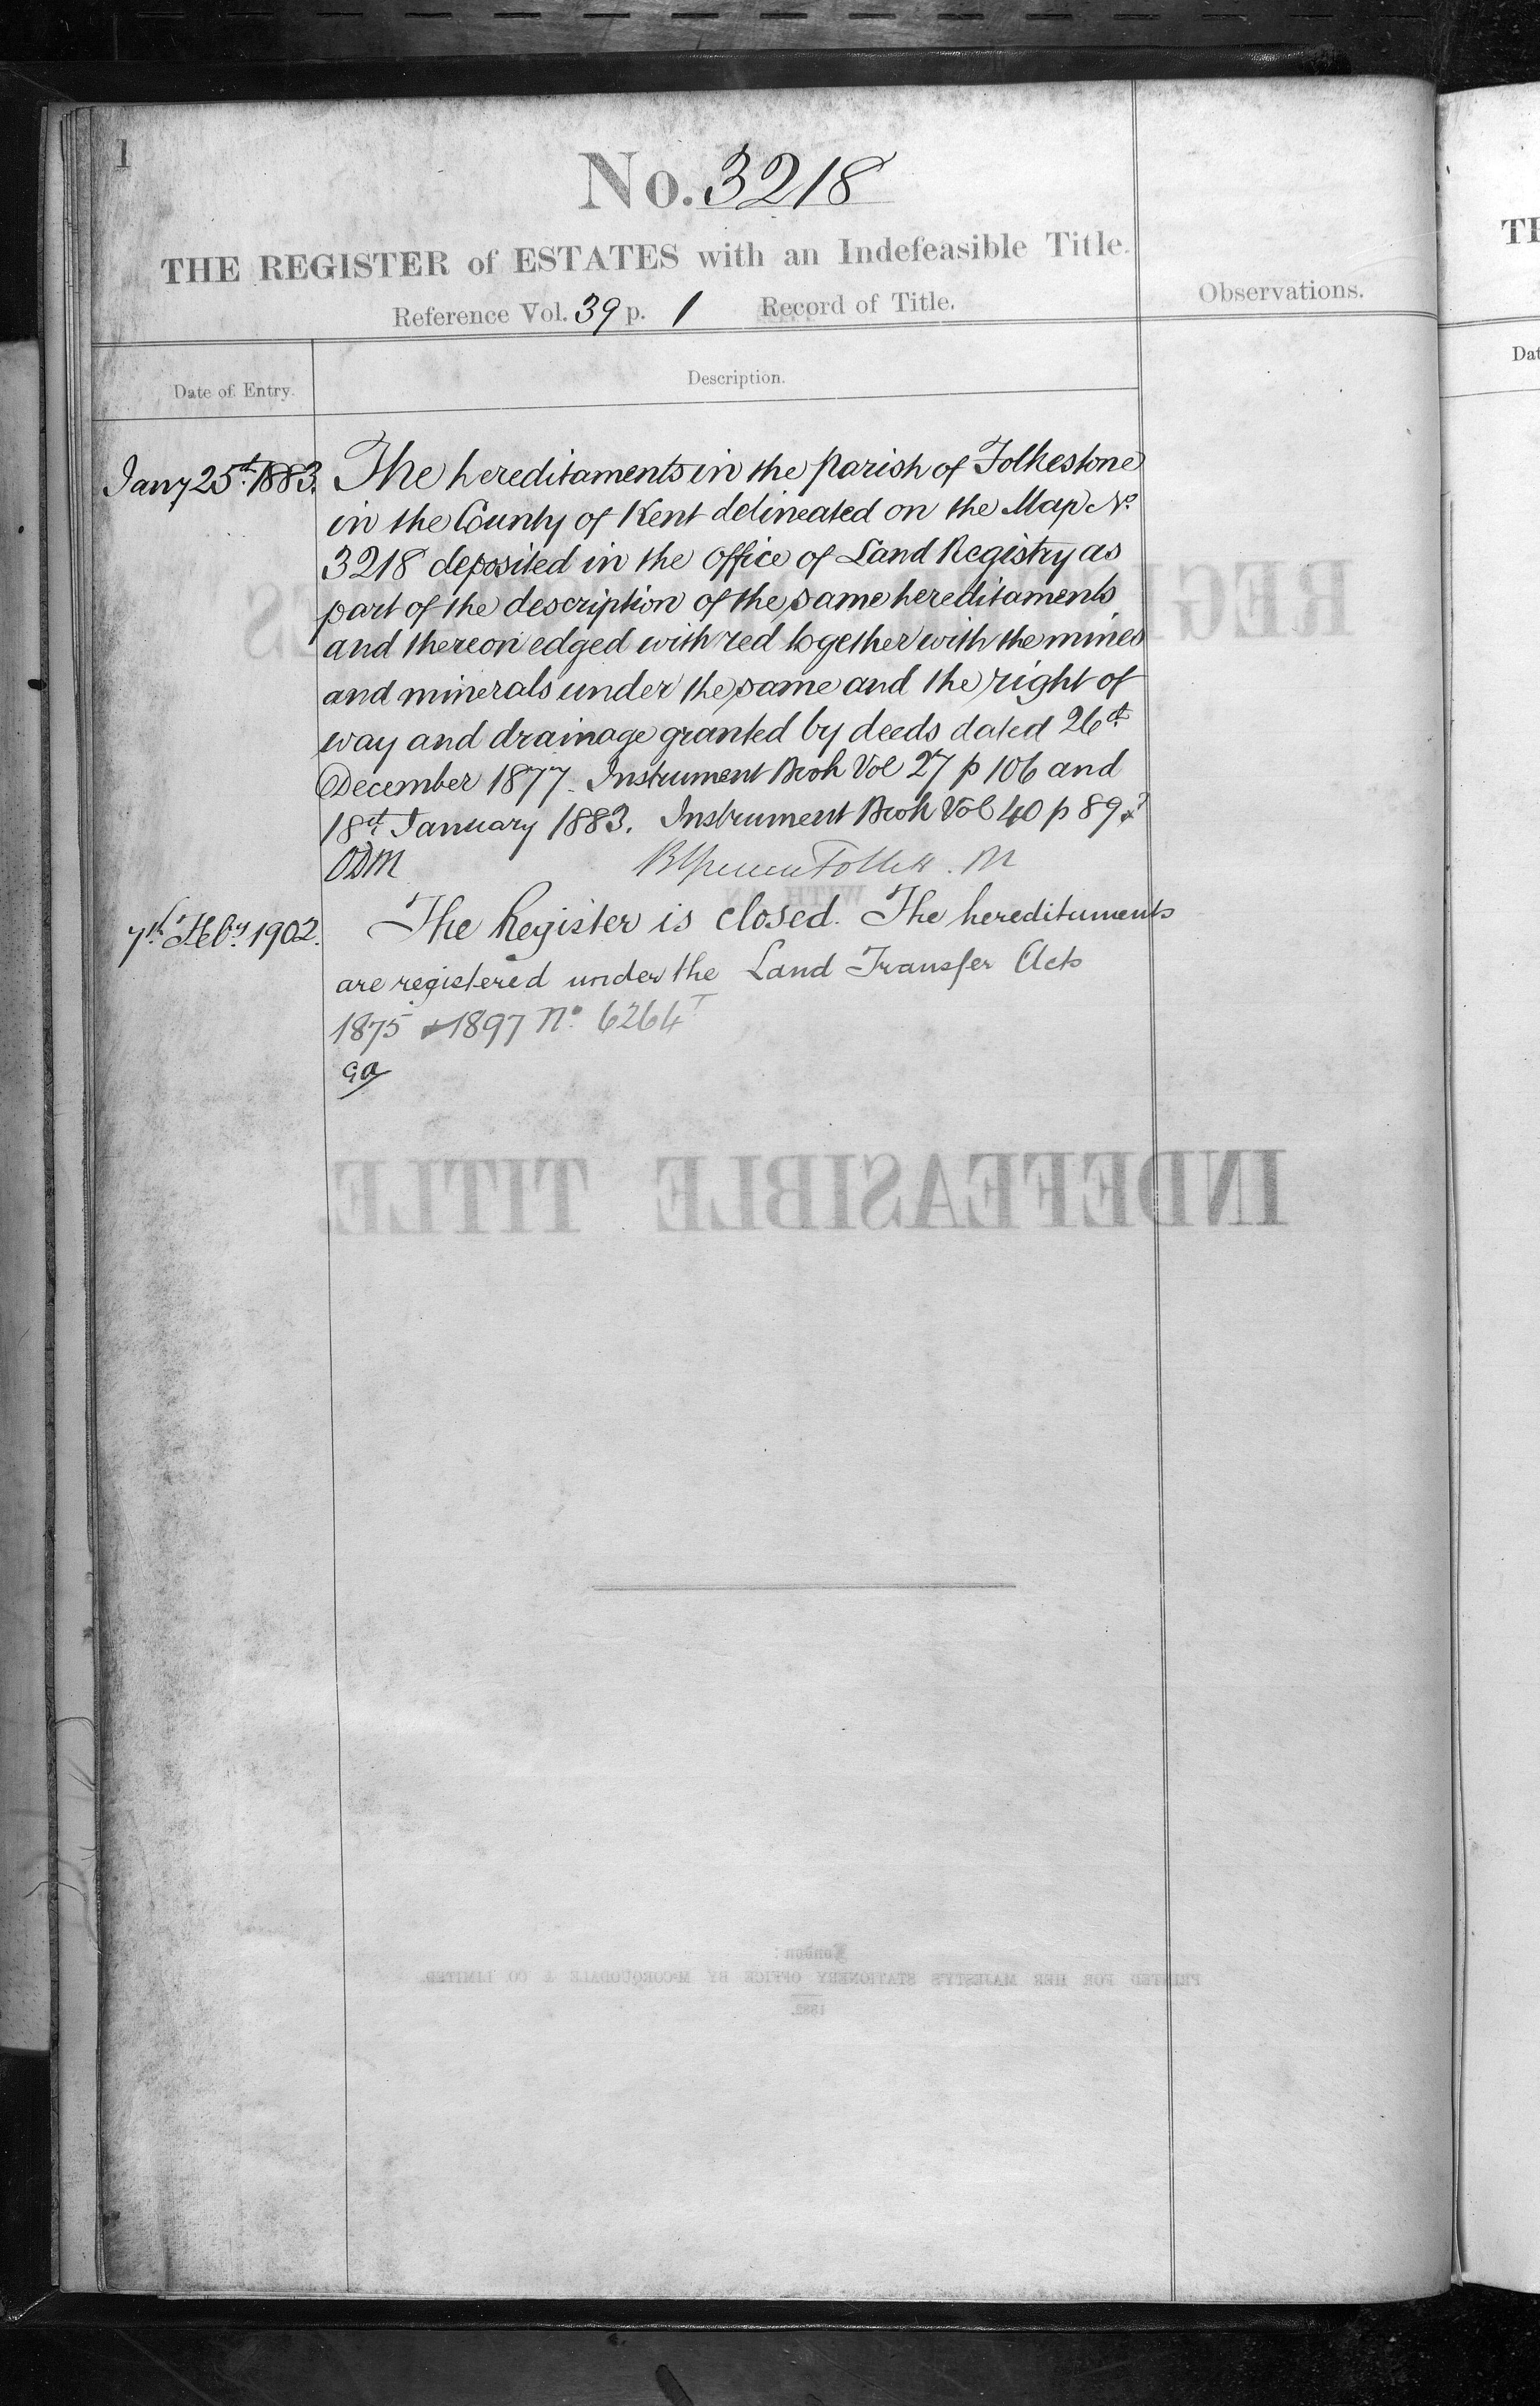 1
No. 3218
THE REGISTER of ESTATES with an Indefeasible Title.
Reference Vol. 39 p. 1 Record of Title.
Observations.
Date of Entry.
Description.
Jany 25th 1883. The hereditaments in the parish of Folkestone
in the County of Kent delineated on the Map No.
3218 deposited in the office of Land Registry as
part of the description of the same hereditaments
and thereon edged with red together with the mines
and minerals under the same and the right of
way and drainage granted by deeds dated 26th
December 1877. Instrument Book Vol 27 p 106 and
18th January 1883. Instrument Book Vol 40 p 89
ODM
7th Feby 1902. The Register is closed. The hereditaments
are registered under the Land Transfer Acts
1875 & 1897 No. 6264
GA
WITH AN
INDEFEASIBLE TITLE
London:
PRINTED FOR HER MAJESTY'S STATIONERY OFFICE BY McCORQUODALE & CO LIMITED.
1882.